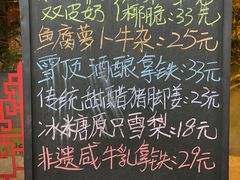 双皮奶（椰脆：33元
鱼腐萝卜牛杂：25元
雪顶酒酿拿铁：33元
传统甜醋猪脚姜：23元
冰糖原只雪梨：18元
非遗咸牛乳拿铁：29元